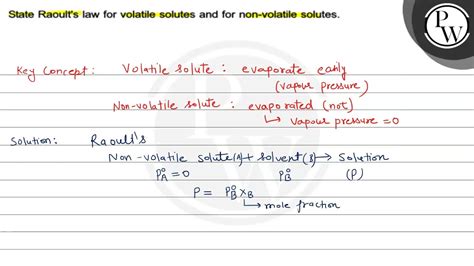 State Raoult's law for volatile solutes and for non-volatile solutes.
PW
Key Concept : Volatile solute : evaporate easily
(vapour pressure)
Non-volatile solute : evaporated (not)
↳ vapour pressure = 0
Solution: Raoult's
Non-volatile solute(A) + solvent(B) → Solution
P°A = 0 P°B (P)
P = P°B XB
↳ mole fraction